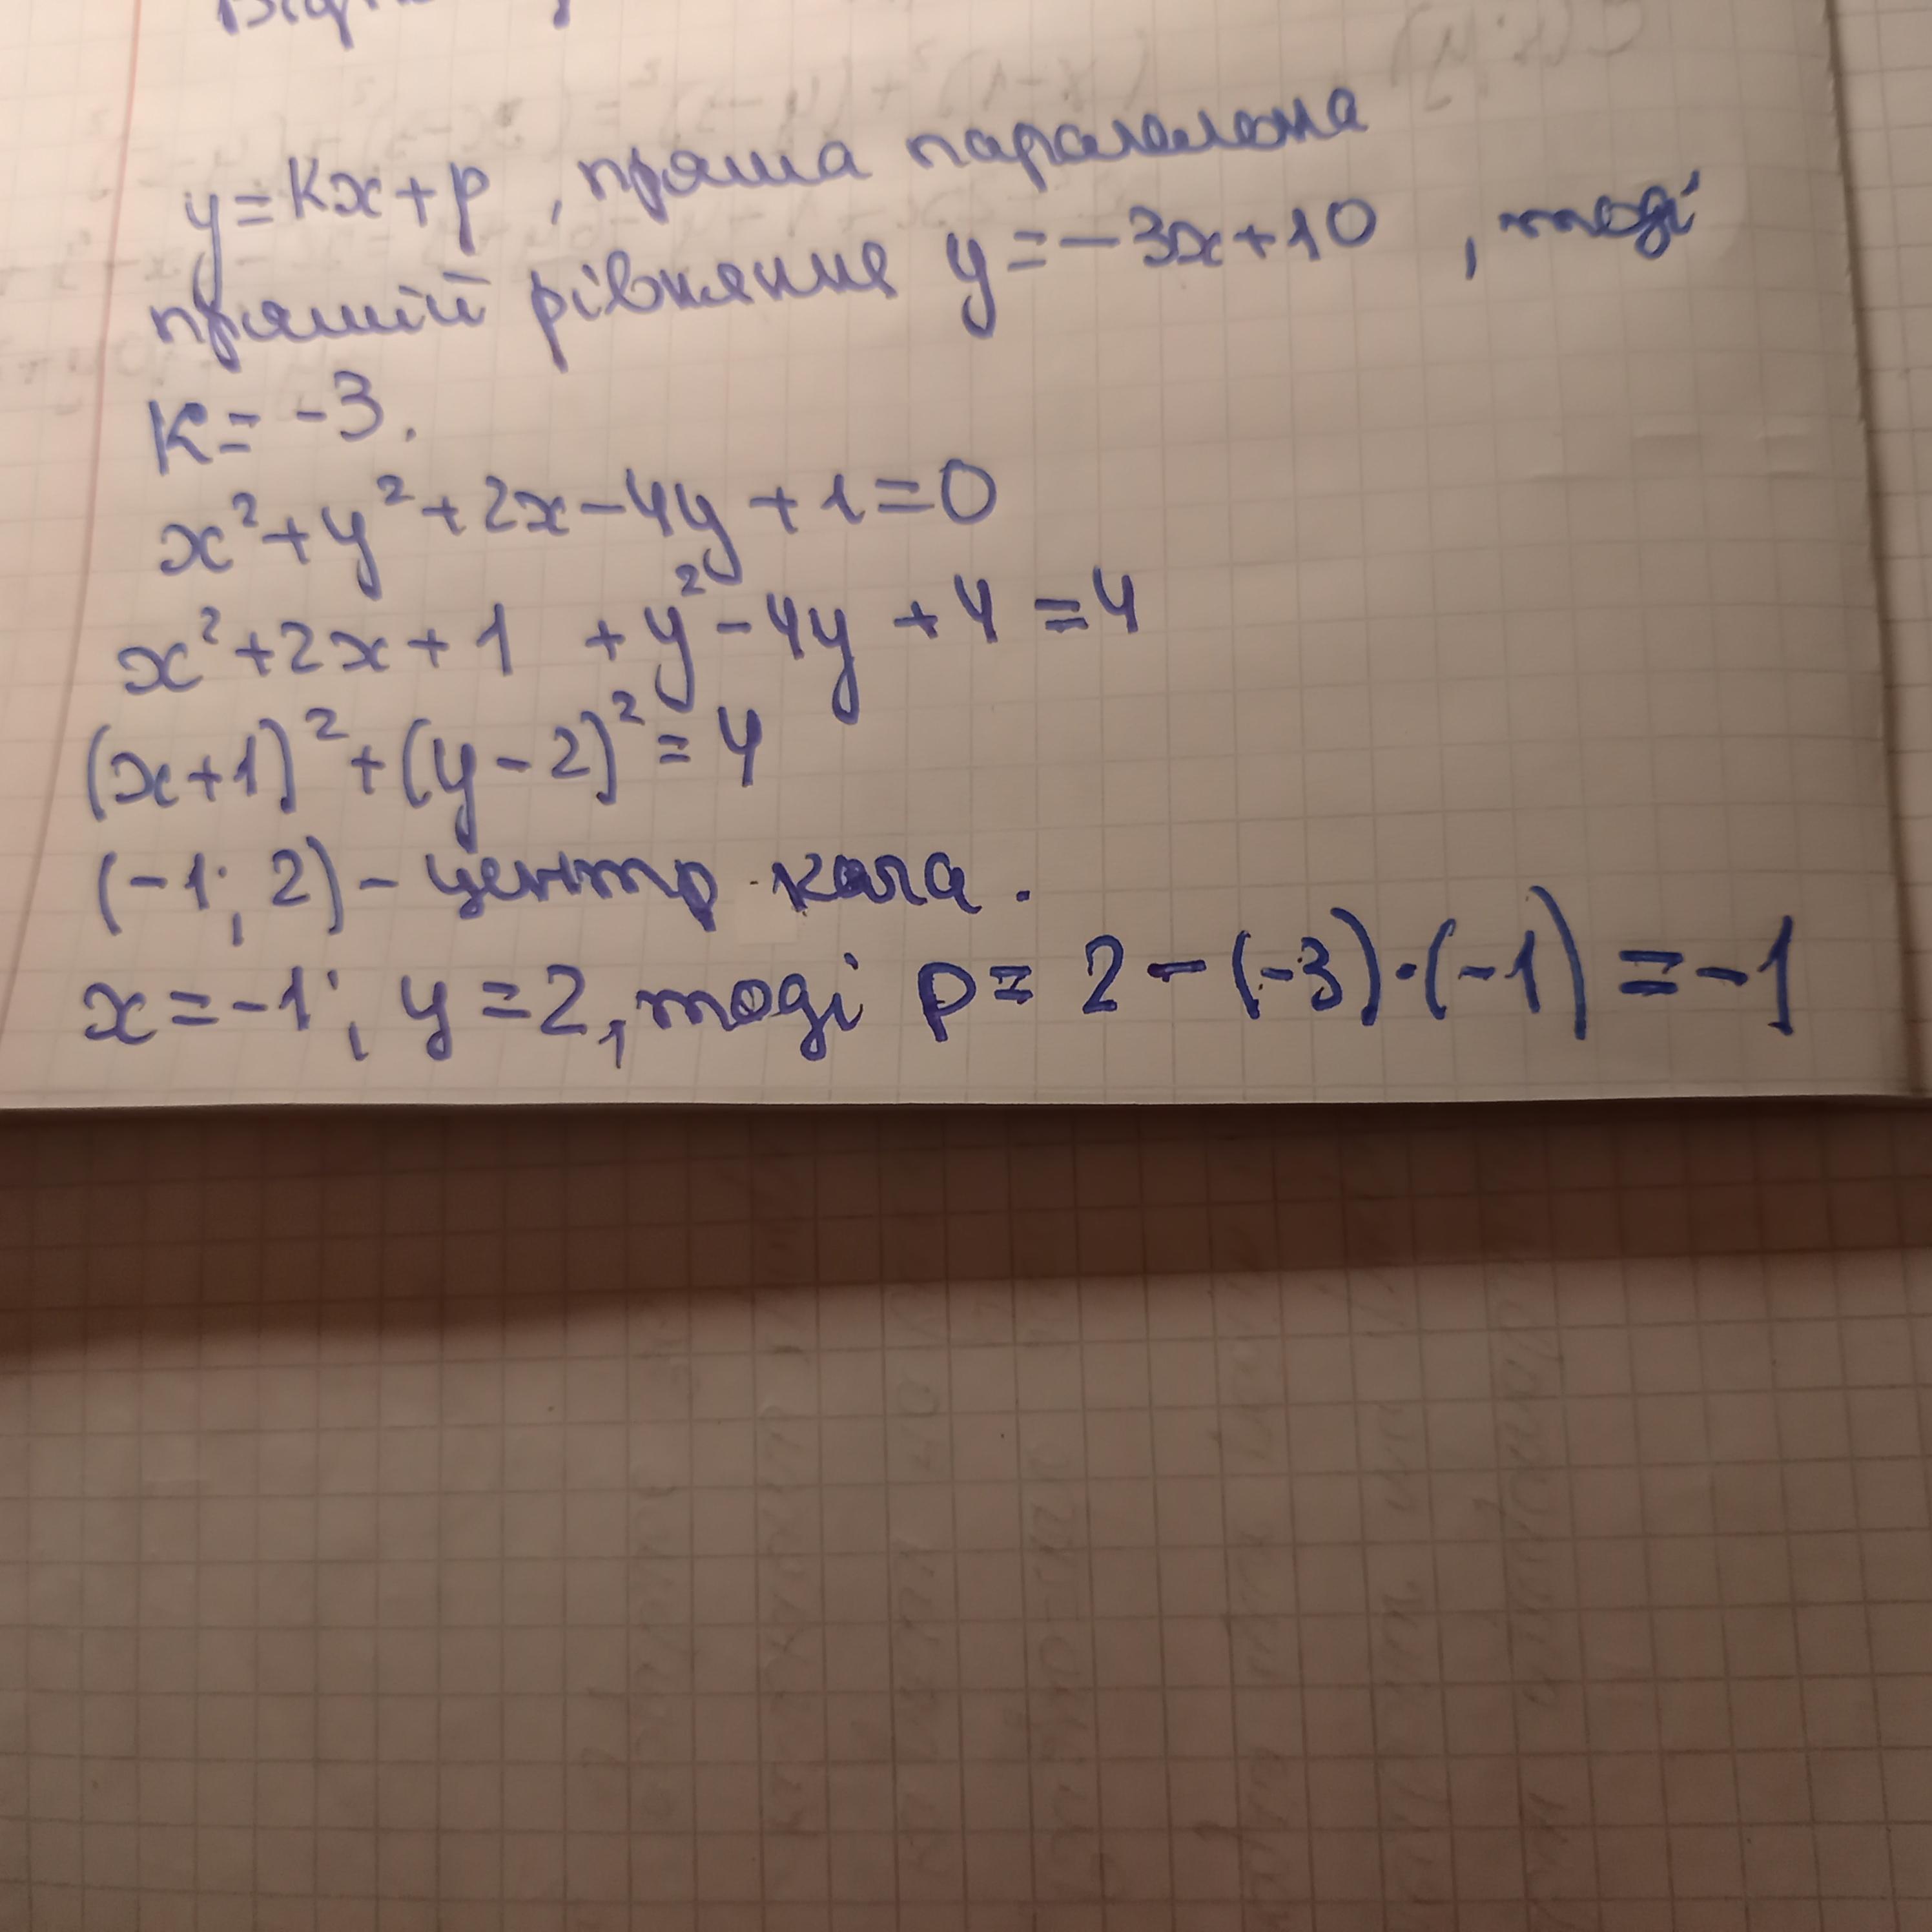 y=kx+p, пряма паралельна
прямій рівняння y=-3x+10, тоді
K=-3.
x²+y²+2x-4y+1=0
x²+2x+1 +y²-4y+4=4
(x+1)²+(y-2)²=4
(-1; 2)-центр кола.
x=-1; y=2, тоді p=2-(-3)·(-1)=-1